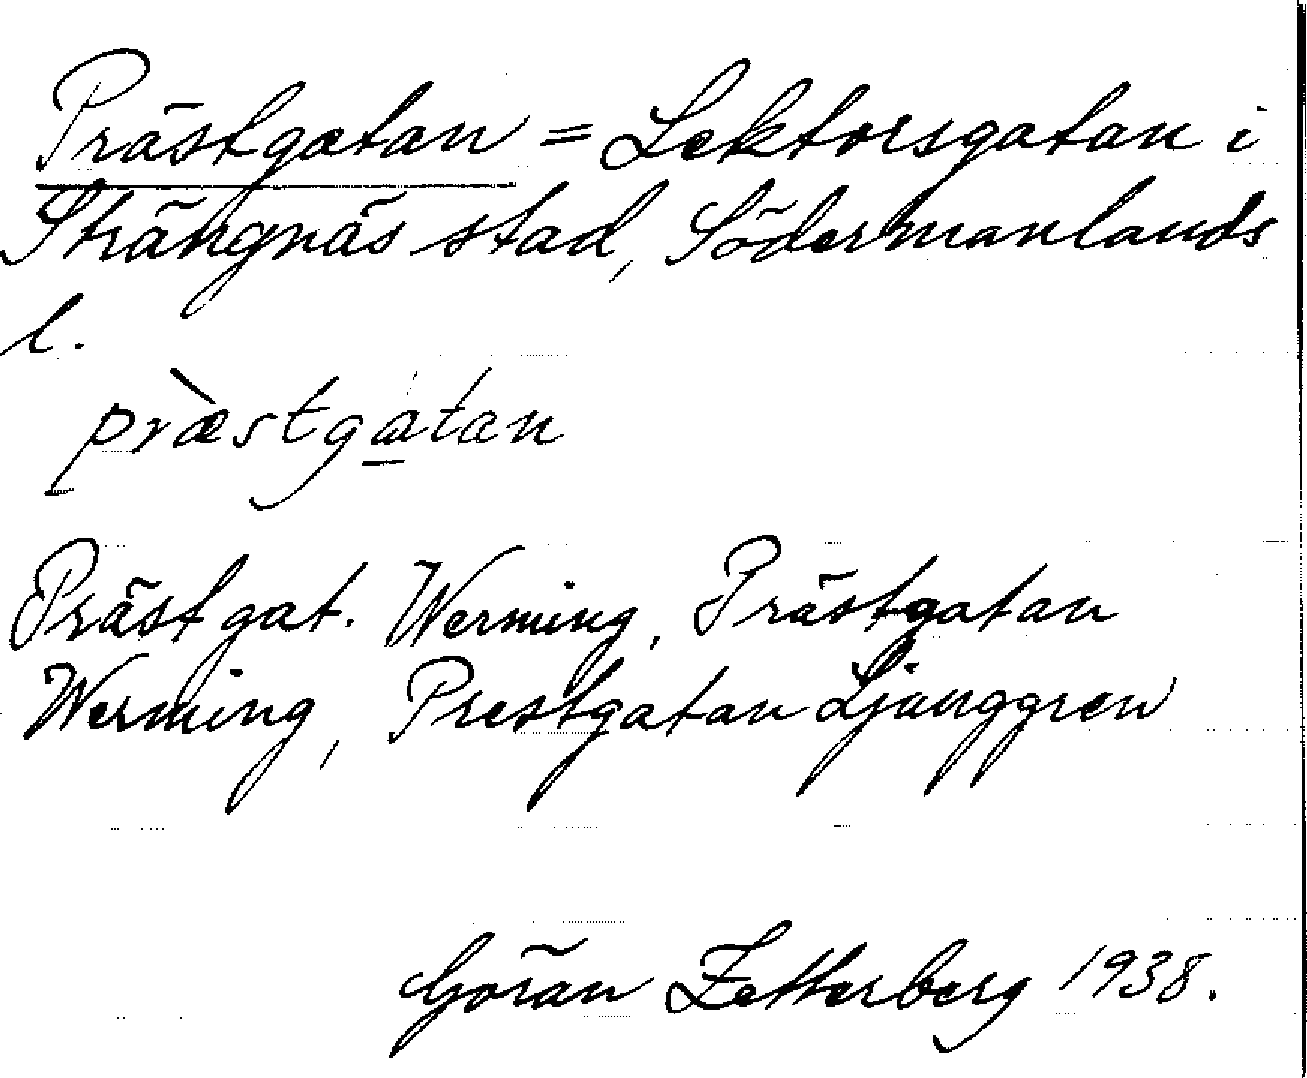 Prästgatan = Lektorsgatan i
Strängnäs stad, Södermanlands
l.
pràestgatan
Prästgat. Werming, Prästgatan
Werming, Prestgatan Ljunggren
Göran Zetterberg 1938.